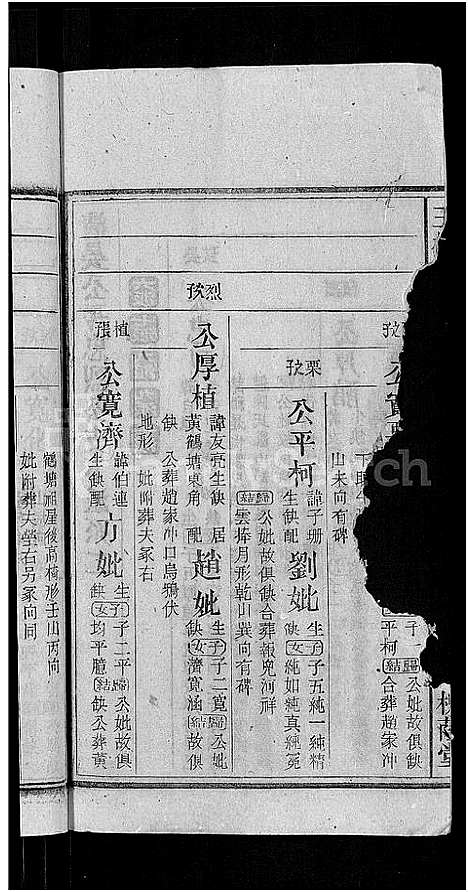 蔭堂
公寬
子一 歸 公妣故俱缺
平柯 結 合葬趙家冲
山未向有碑
栗孜
公平柯 諱子珊 生子子五純一純精
生缺配 劉妣 缺女純如純真純冕
歸 公妣故俱缺合葬報兜河祥
結 雲捧月形乾山巽向有碑
烈孜
公厚植 諱友亮生缺 居 生子子二寬 歸 公妣
黃鶴塘東角 配 趙妣 缺女濟寬涵 結 故俱
缺 公葬趙家冲口烏鴉伏
地形 妣附葬夫冢右
植張
公寬濟 諱伯連 生子子二平 歸 公妣故俱
生缺配 方妣 缺女均平 結 缺公葬黃
鶴塘祖屋後高橋形壬山丙向
妣附葬夫塋右另冢向同